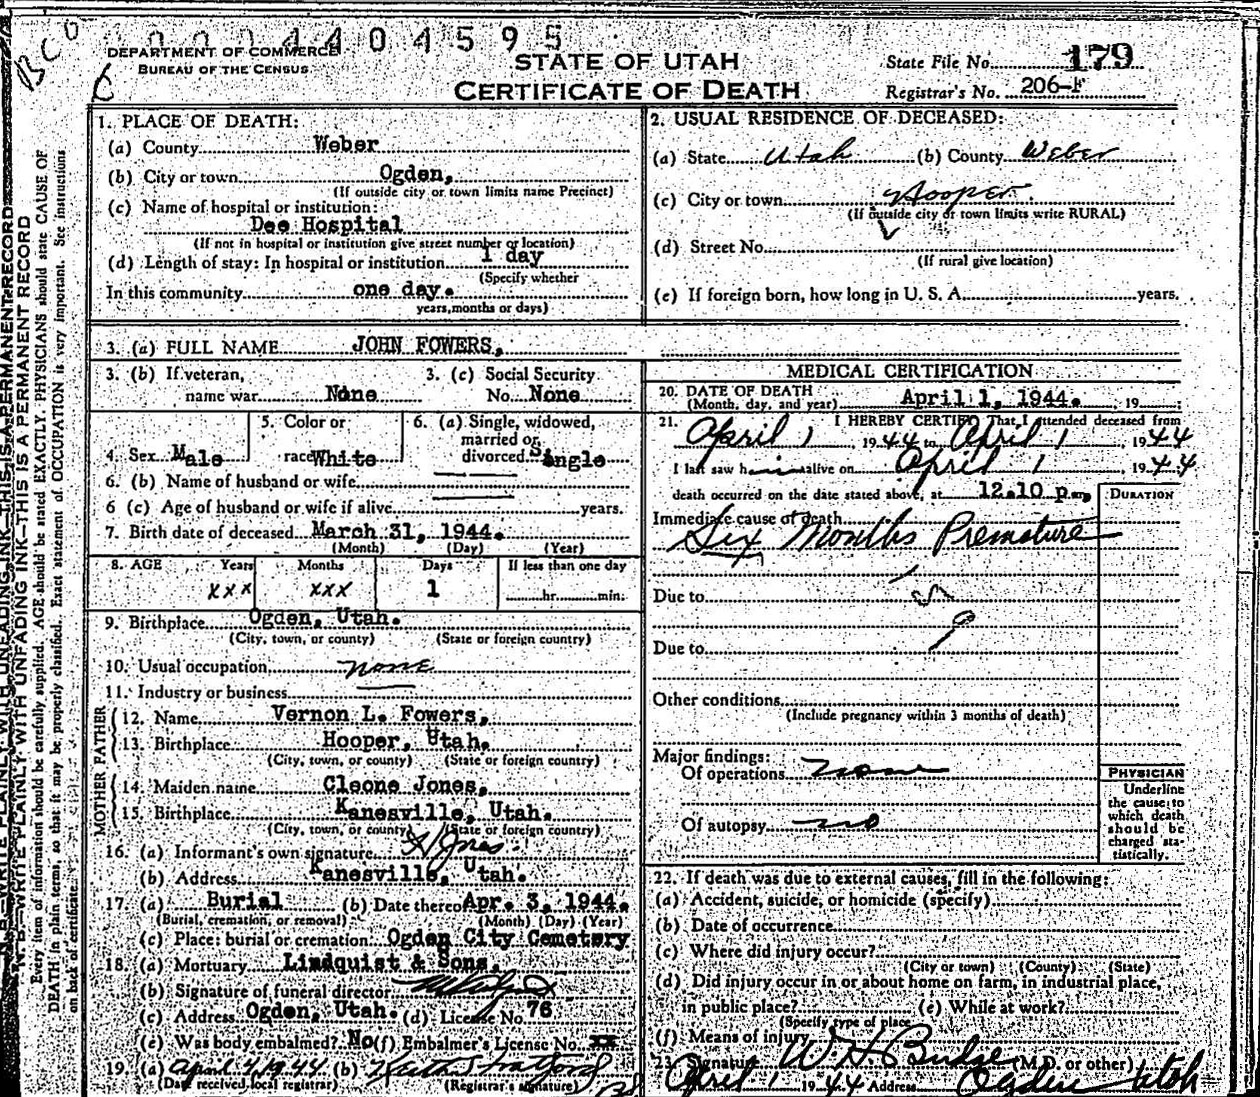 0 0 0 4 4 0 4 5 9 5
DEPARTMENT OF COMMERCE
BUREAU OF THE CENSUS
STATE OF UTAH
CERTIFICATE OF DEATH
State File No. 179
Registrar's No. 206-F
1. PLACE OF DEATH:
(a) County Weber
(b) City or town Ogden,
(If outside city or town limits name Precinct)
(c) Name of hospital or institution:
Dee Hospital
(If not in hospital or institution give street number or location)
(d) Length of stay: In hospital or institution 1 day
(Specify whether
In this community one day.
years, months or days)
2. USUAL RESIDENCE OF DECEASED:
(a) State Utah (b) County Weber
(c) City or town Hooper
(If outside city or town limits write RURAL)
(d) Street No.
(If rural give location)
(e) If foreign born, how long in U. S. A. years.
3. (a) FULL NAME JOHN FOWERS,
3. (b) If veteran, name war None
3. (c) Social Security No. None
4. Sex Male
5. Color or race White
6. (a) Single, widowed, married or divorced Single
6. (b) Name of husband or wife
6 (c) Age of husband or wife if alive years.
7. Birth date of deceased March 31, 1944.
(Month) (Day) (Year)
8. AGE Years Months Days If less than one day
xxx xxx 1 hr. min.
9. Birthplace Ogden, Utah.
(City, town, or county) (State or foreign country)
10. Usual occupation none
11. Industry or business
FATHER
12. Name Vernon L. Fowers,
13. Birthplace Hooper, Utah.
(City, town, or county) (State or foreign country)
MOTHER
14. Maiden name Cleone Jones,
15. Birthplace Kanesville, Utah.
(City, town, or county) (State or foreign country)
16. (a) Informant's own signature Jones
(b) Address Kanesville, Utah.
17. (a) Burial (b) Date thereof Apr. 3, 1944.
(Burial, cremation, or removal) (Month) (Day) (Year)
(c) Place: burial or cremation Ogden City Cemetery
18. (a) Mortuary Lindquist & Sons,
(b) Signature of funeral director
(c) Address Ogden, Utah. (d) License No. 76
(e) Was body embalmed? No (f) Embalmer's License No. xx
19. (a) April 4, 1944 (b)
(Date received local registrar) (Registrar's signature)
MEDICAL CERTIFICATION
20. DATE OF DEATH
(Month, day, and year) April 1, 1944. , 19
21. I HEREBY CERTIFY That I attended deceased from
April 1 1944 to April 1, 1944
I last saw him alive on April 1, 1944
death occurred on the date stated above, at 12.10 p.m,
DURATION
Immediate cause of death
Six Months Premature
Due to
Due to
Other conditions
(Include pregnancy within 3 months of death)
Major findings:
Of operations none
Of autopsy no
PHYSICIAN
Underline
the cause to
which death
should be
charged sta-
tistically.
22. If death was due to external causes, fill in the following:
(a) Accident, suicide, or homicide (specify)
(b) Date of occurrence
(c) Where did injury occur?
(City or town) (County) (State)
(d) Did injury occur in or about home on farm, in industrial place,
in public place? (e) While at work?
(Specify type of place
(f) Means of injury
23. Signature W. H. (M.D. or other)
April 1 1944 Address Ogden Utah
WRITE PLAINLY WITH UNFADING INK—THIS IS A PERMANENT RECORD
N. B.—WRITE PLAINLY WITH UNFADING INK—THIS IS A PERMANENT RECORD
Every item of information should be carefully supplied. AGE should be stated EXACTLY. PHYSICIANS should state CAUSE OF
DEATH in plain terms, so that it may be properly classified. Exact statement of OCCUPATION is very important. See instructions
on back of certificate.